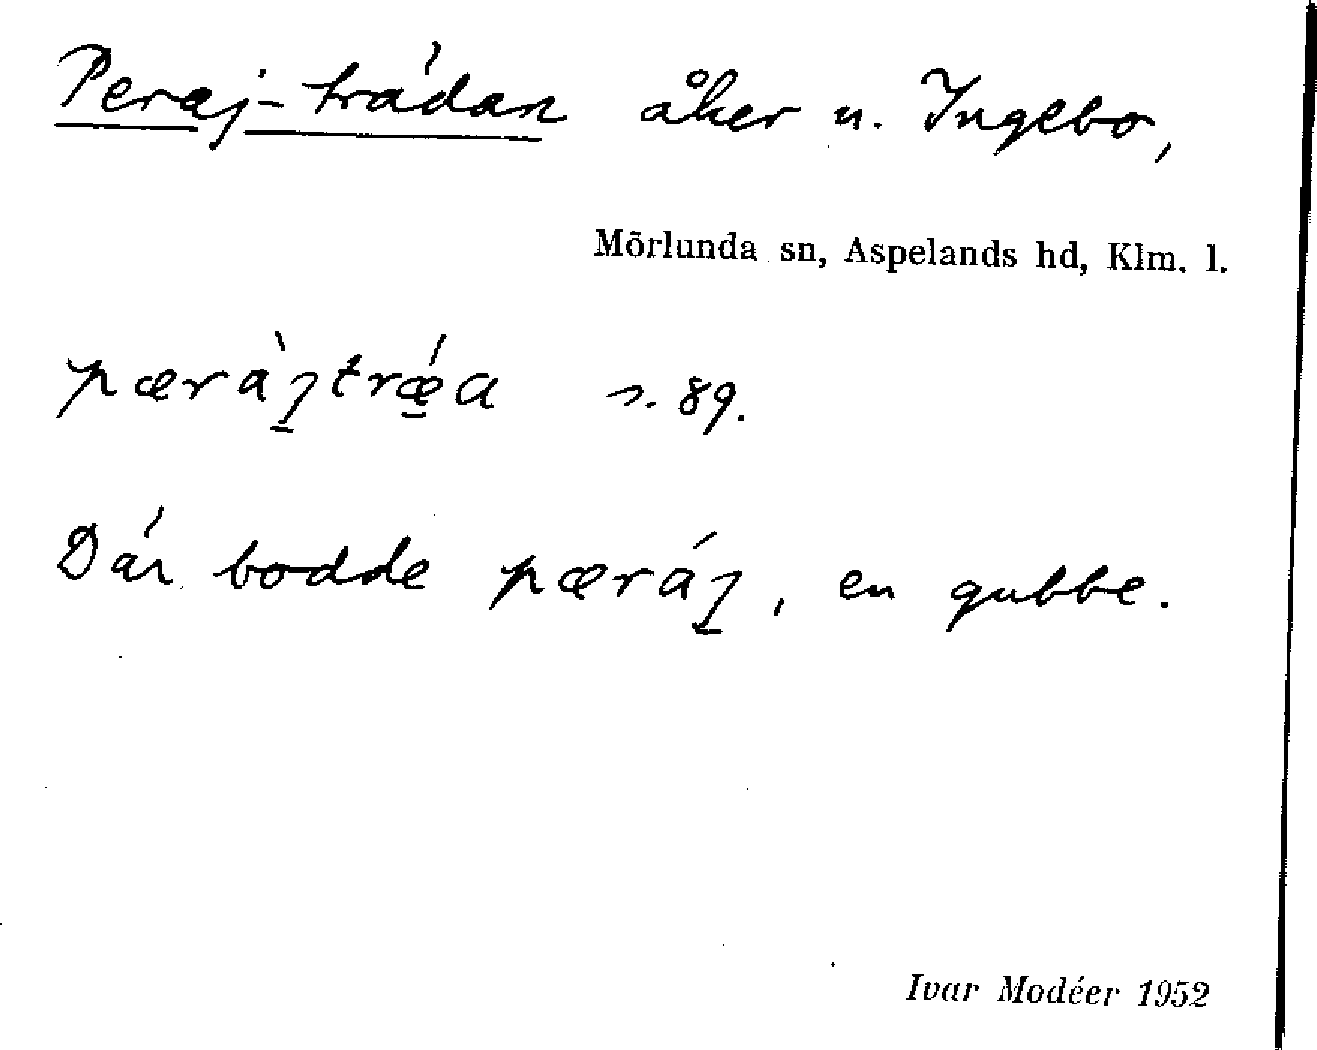 Peraj-trädan åker u. Ingebo,
Mörlunda sn, Aspelands hd, Klm. l.
s. 89.
Där bodde, en gubbe.
Ivar Modéer 1952